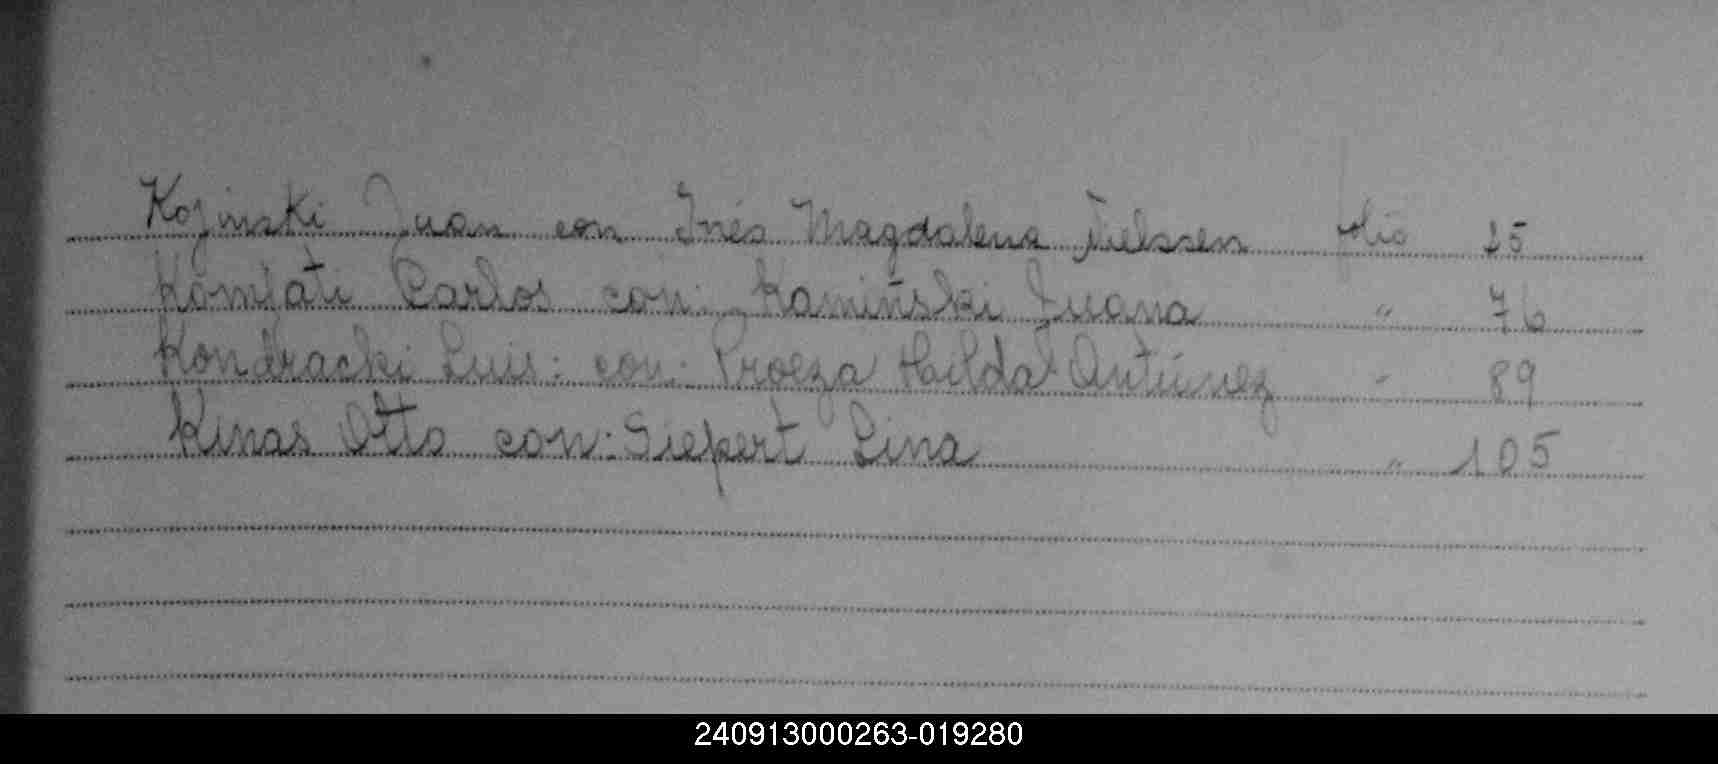 Kojinski Juan con Inés Magdalena Nielssen folio 25
Komlati Carlos con: Kamiñski Juana " 76
Kondracki Luis: con: Proeza Hilda Antúnez " 89
Kinas Otto con: Siepert Lina " 105
240913000263-019280